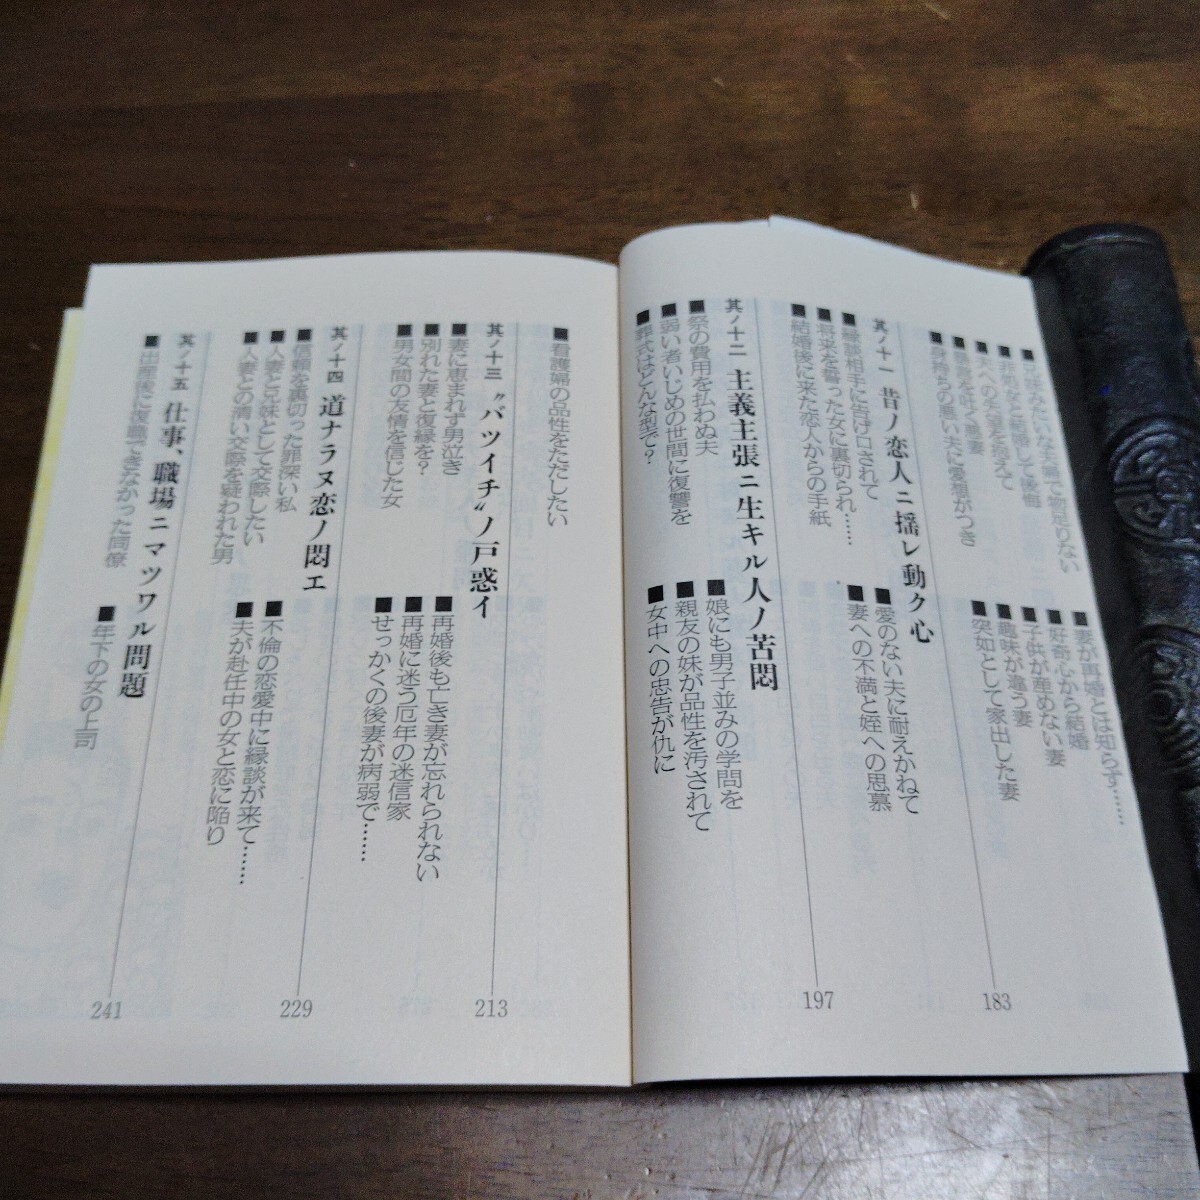 妹みたいな夫婦で物足りない
妻が再婚とは知らず……
芸処女と結婚して後悔
好奇心から結婚
女への大望を抱えて
子供が産めない妻
毒舌を吐く悪妻
趣味が違う妻
身持ちの悪い夫に愛想がつき
突如として家出した妻
其ノ十一 昔ノ恋人ニ揺レ動ク心
183
■縁談相手に告げ口されて
■愛のない夫に耐えかねて
■将来を誓った女に裏切られ……
■妻への不満と姪への思慕
■結婚後に来た恋人からの手紙
其ノ十二 主義主張ニ生キル人ノ苦悶
197
■祭の費用を払わぬ夫
■娘にも男子並みの学問を
■弱い者いじめの世間に復讐を
■親友の妹が品性を汚されて
■葬式はどんな型で?
■女中への忠告が仇に
■看護婦の品性をただしたい
其ノ十三 “バツイチ”ノ戸惑イ
213
■妻に恵まれず男泣き
■再婚後も亡き妻が忘れられない
■別れた妻と復縁を?
■再婚に迷う厄年の迷信家
■男女間の友情を信じた女
■せっかくの後妻が病弱で……
其ノ十四 道ナラヌ恋ノ悶エ
229
■信頼を裏切った罪深い私
■不倫の恋愛中に縁談が来て……
■人妻と兄妹として交際したい
■夫が赴任中の女と恋に陥り
■人妻との清い交際を疑われた男
其ノ十五 仕事、職場ニマツワル問題
241
■出産後に復職できなかった同僚
■年下の女の上司